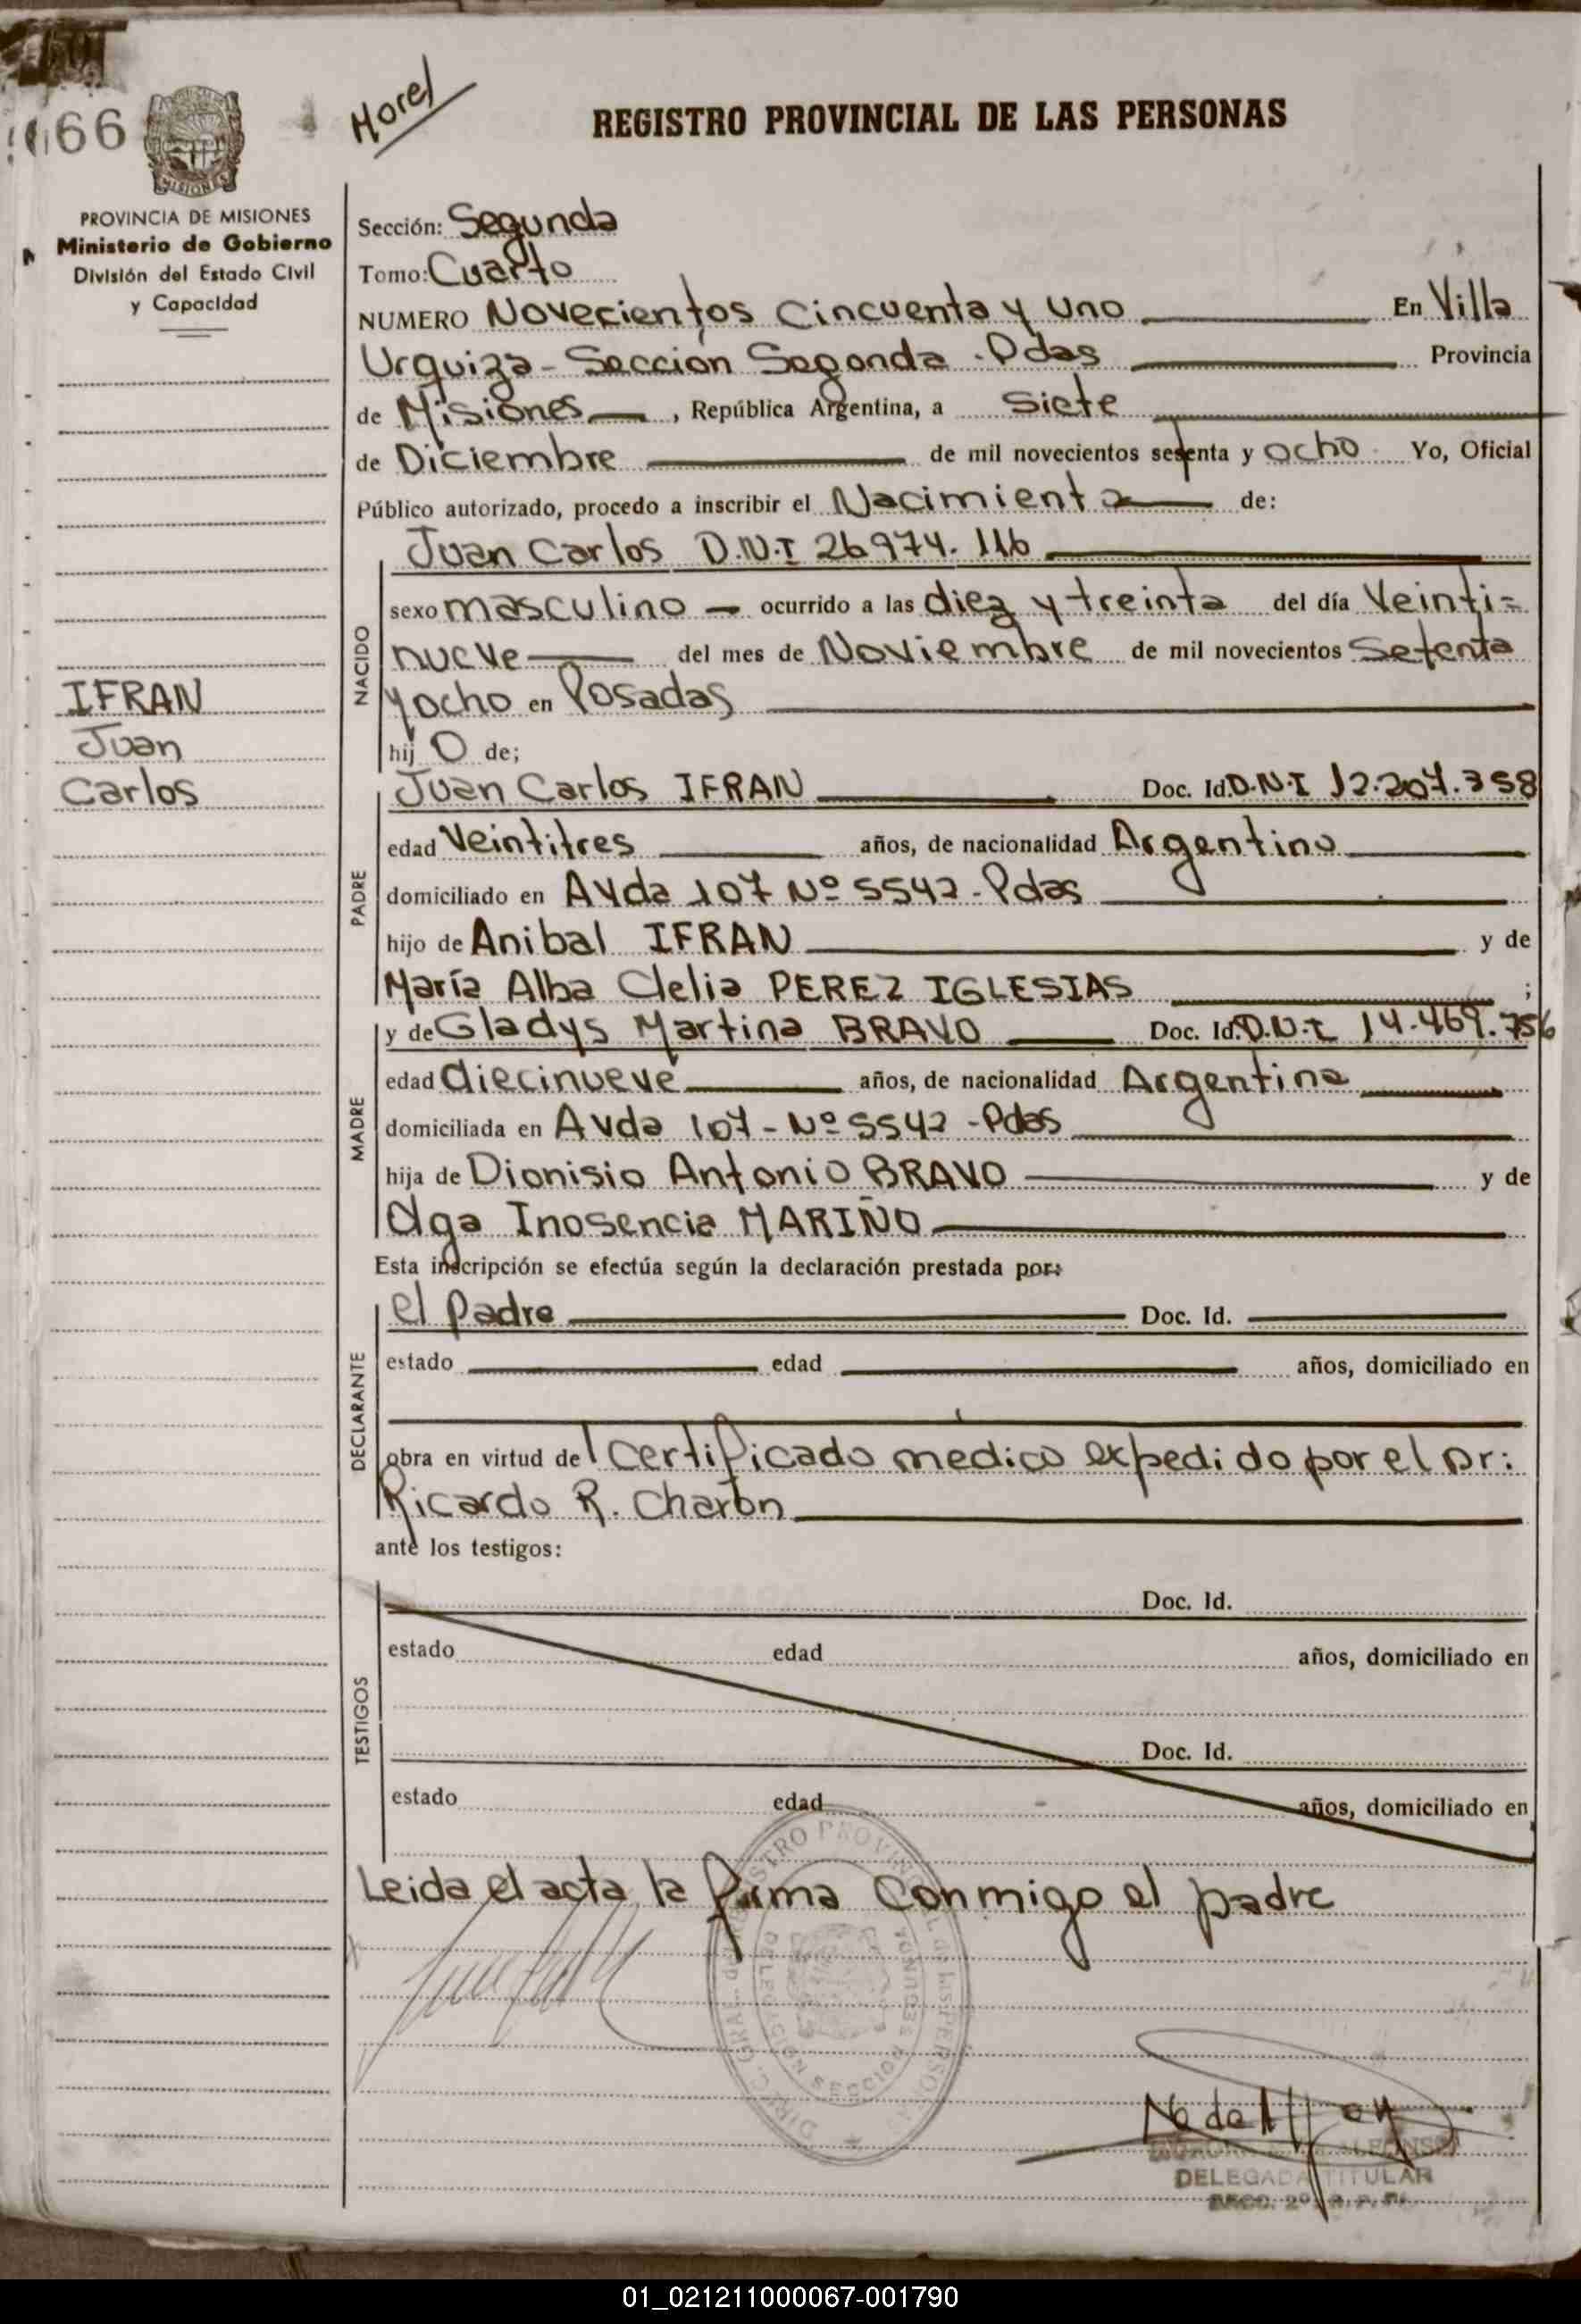 66
Morel
REGISTRO PROVINCIAL DE LAS PERSONAS
MISIONES
PROVINCIA DE MISIONES
Ministerio de Gobierno
División del Estado Civil
y Capacidad
Sección: Segunda
Tomo: Cuarto
NUMERO Novecientos Cincuenta y uno En Villa
Urquiza - Sección Segonda - Pdas Provincia
de Misiones, República Argentina, a Siete
de Diciembre de mil novecientos setenta y ocho Yo, Oficial
Público autorizado, procedo a inscribir el Nacimiento de:
NACIDO
Juan Carlos D.N.I 26974.116
sexo masculino ocurrido a las diez y treinta del día Veinti=
nueve del mes de Noviembre de mil novecientos Setenta
y ocho en Posadas
hij O de;
IFRAN
Juan
Carlos
PADRE
Juan Carlos IFRAN Doc. Id. D.N.I 12.207.358
edad Veintitres años, de nacionalidad Argentino
domiciliado en Avda 107 Nº 5542 - Pdas
hijo de Anibal IFRAN y de
María Alba Clelia PEREZ IGLESIAS ;
MADRE
y de Gladys Martina BRAVO Doc. Id. D.N.I 14.469.756
edad diecinueve años, de nacionalidad Argentina
domiciliada en Avda 107 - Nº 5542 - Pdas
hija de Dionisio Antonio BRAVO y de
Olga Inosencia MARIÑO
Esta inscripción se efectúa según la declaración prestada por:
DECLARANTE
el Padre Doc. Id.
estado edad años, domiciliado en
obra en virtud del Certificado medico expedido por el Dr:
Ricardo R. Charon
ante los testigos:
TESTIGOS
Doc. Id.
estado edad años, domiciliado en
Doc. Id.
estado edad años, domiciliado en
Leida el acta la firma Conmigo el padre
DELEGACION SECCION SEGUNDA
DELEGADA TITULAR
SECC. 2º R. P. P.
01_021211000067-001790